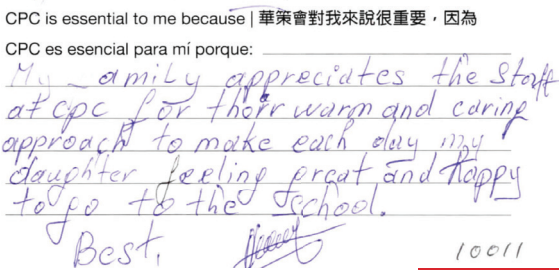 CPC is essential to me because | 華策會對我來說很重要，因為
CPC es esencial para mí porque:
My family appreciates the Staff
at cpc for their warm and caring
approach to make each day my
daughter feeling great and Happy
to go to the School.
Best,
10011